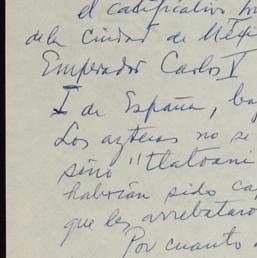 el calificativo
de la Ciudad de Méxi
Emperador Carlos V
I de España, ba
Los aztecas no se
sino "tlatoani
habrían sido ca
que les arrebataro
Por cuanto a